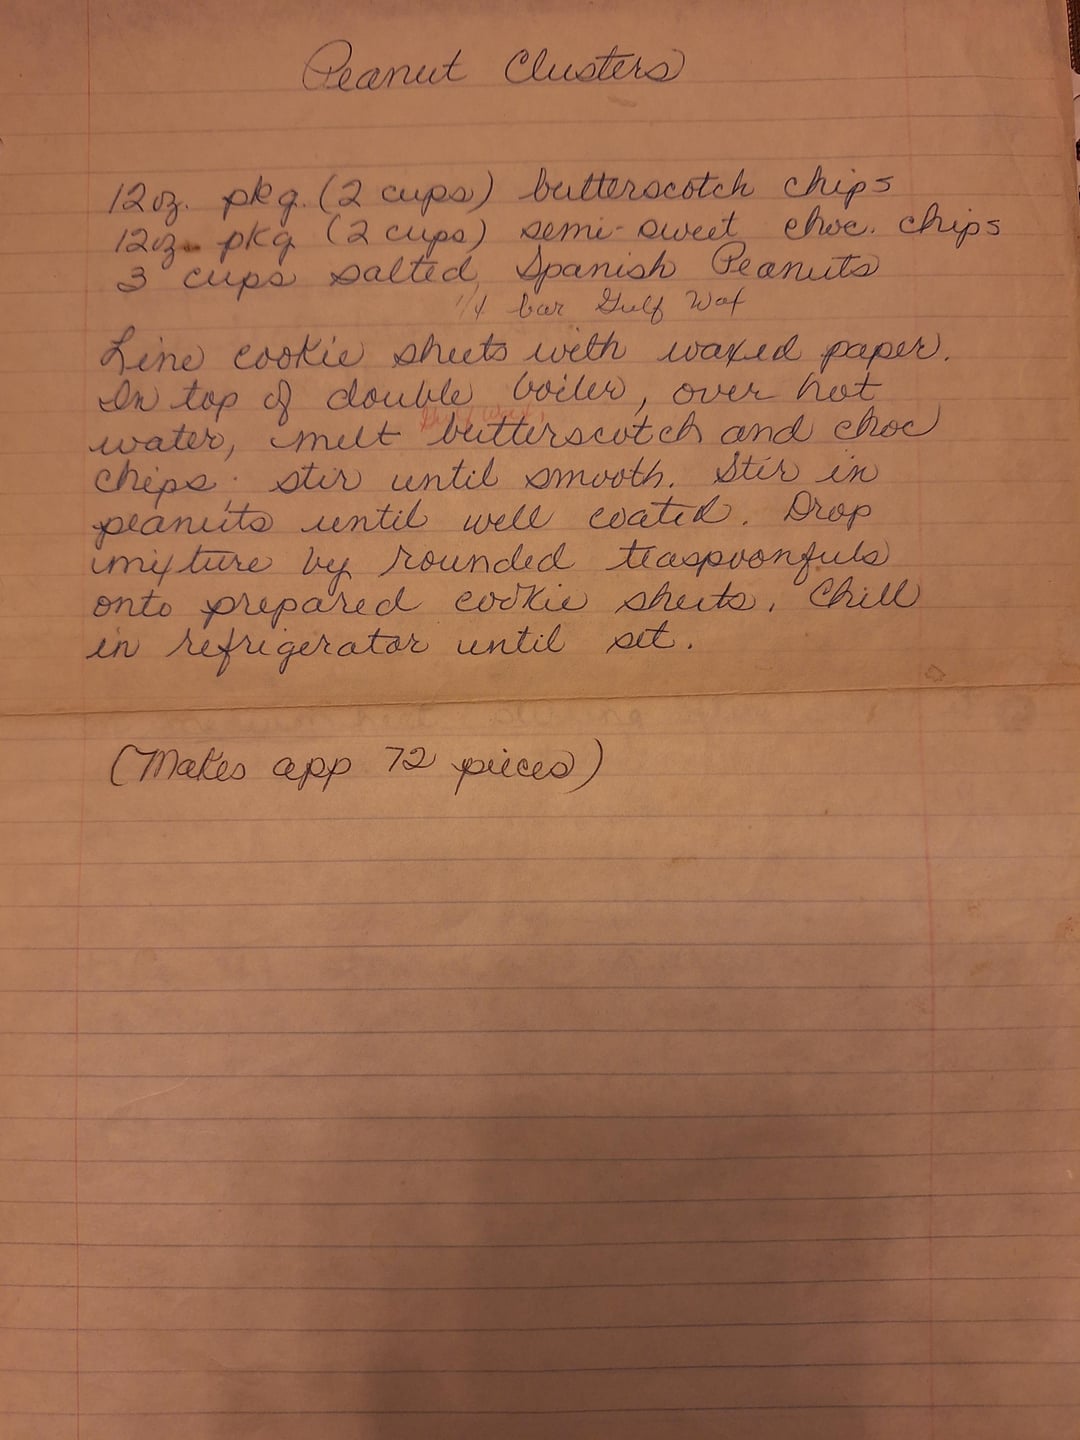 Peanut Clusters
12 oz. pkg. (2 cups) butterscotch chips
12 oz. pkg (2 cups) semi-sweet choc. chips
3 cups salted Spanish Peanuts
1/4 bar Gulf Wax
Line cookie sheets with waxed paper.
In top of double boiler, over hot
Gulf Wax,
water, melt butterscotch and choc
chips. stir until smooth. Stir in
peanuts until well coated. Drop
mixture by rounded teaspoonfuls
onto prepared cookie sheets. Chill
in refrigerator until set.
(Makes app 72 pieces)